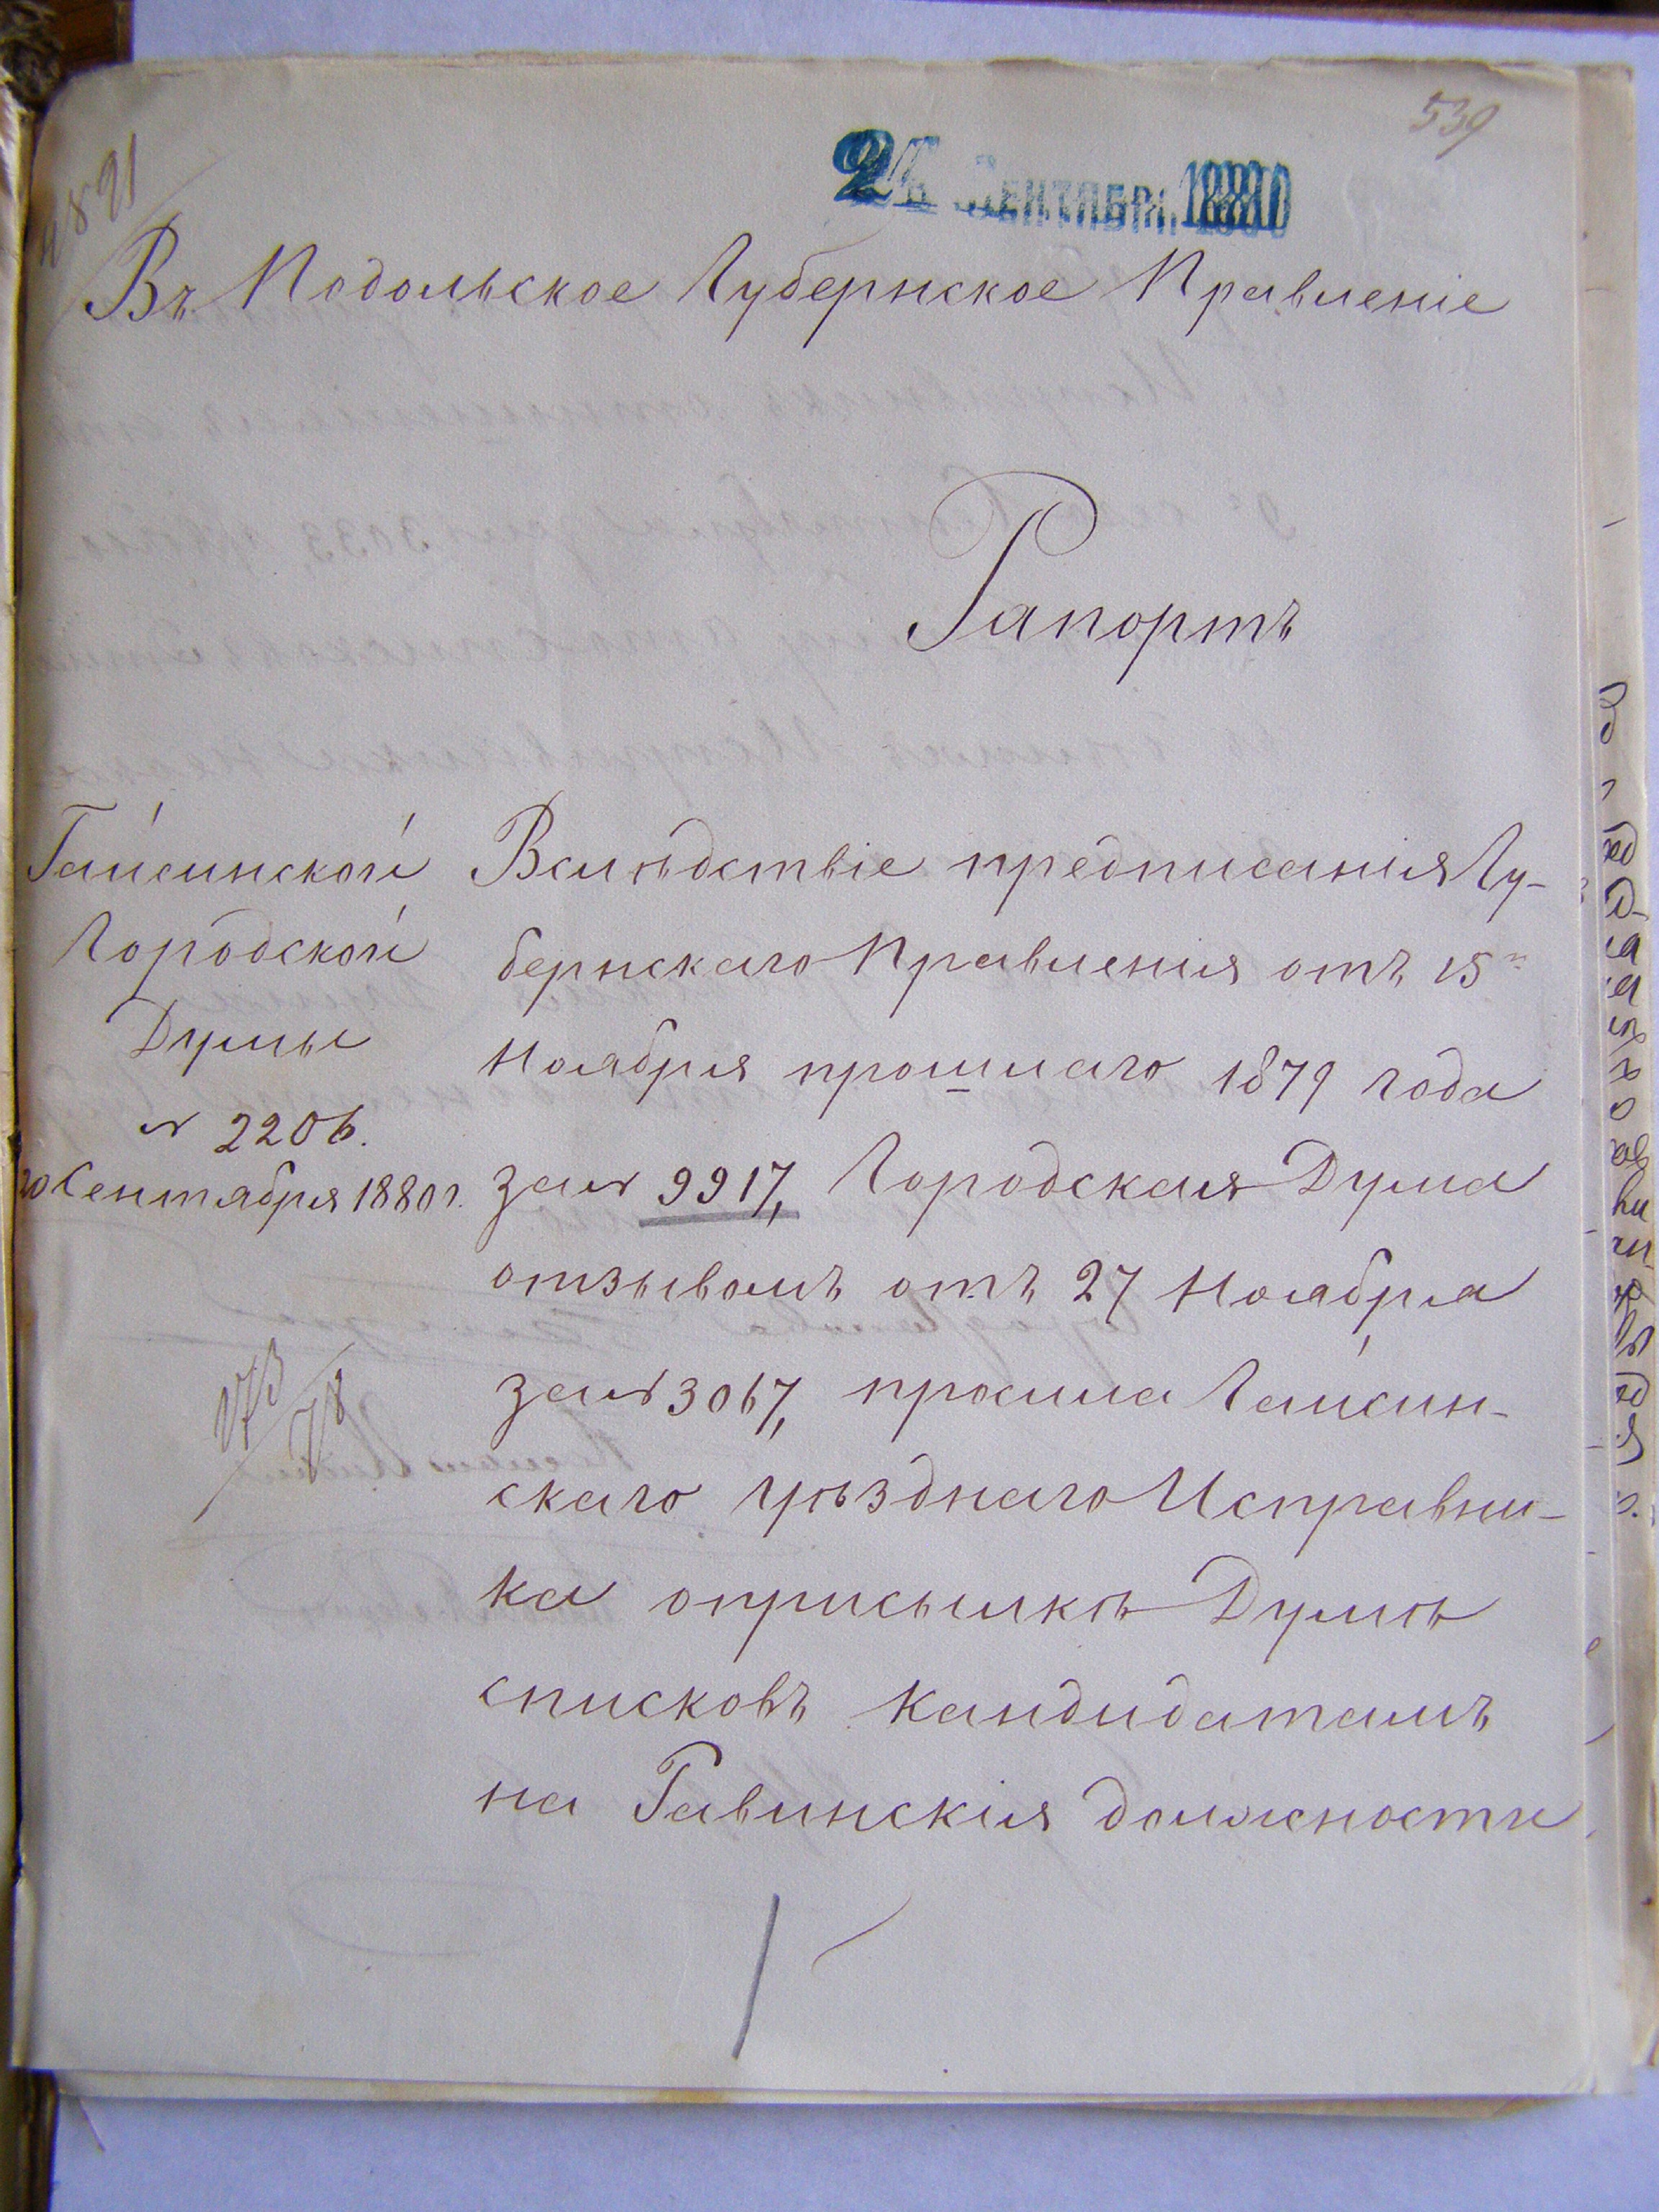 539
4891
24 СЕНТЯБРЯ 1880
Въ Подольское Губернское Правленіе
Рапортъ
Гайсинской
Городской
Думы
№ 2206.
20 Сентября 1880 г.
173/78
Вслѣдствіе предписанія Гу-
бернскаго Правленія отъ 15
Ноября прошлаго 1879 года
за № 9917, Городская Дума
отзывомъ отъ 27 Ноября
за № 3067, просила Гайсин-
скаго Уѣзднаго Исправни-
ка о присылкѣ Думѣ
списковъ кандидатамъ
на Равинскія должности